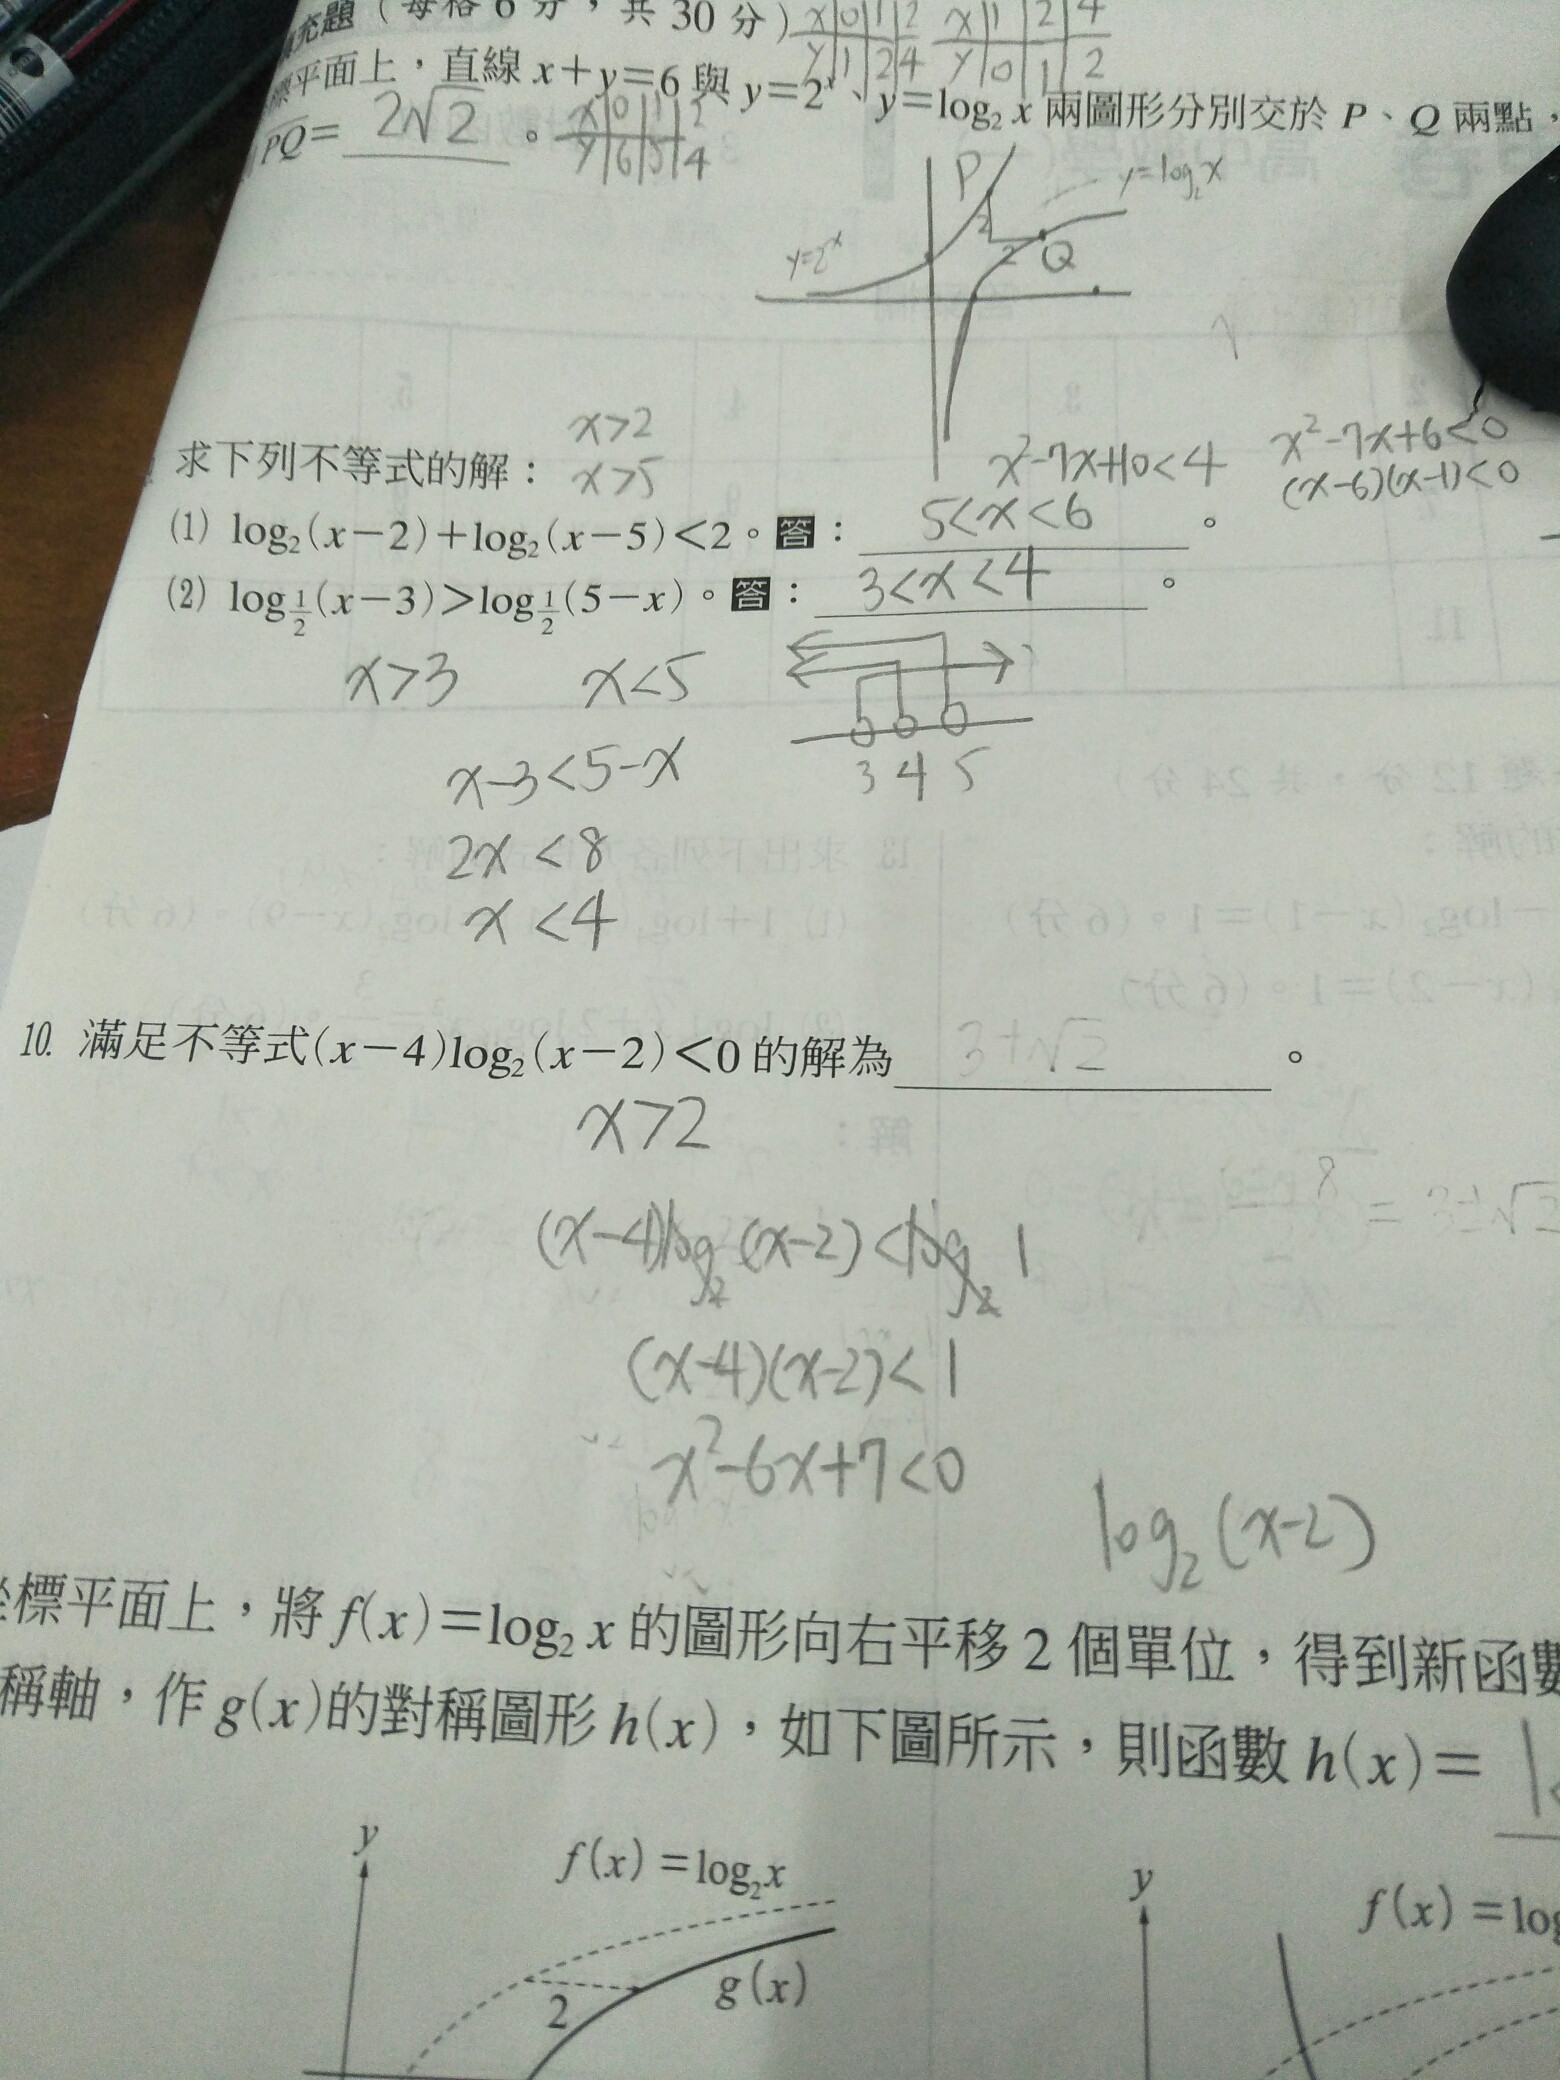 充題(每格6分,共30分) x 0 1 2 x 1 2 4
y 1 2 4 y 0 1 2
標平面上,直線 x+y=6 與 y=2^x、y=log₂ x 兩圖形分別交於 P、Q 兩點,
PQ= 2√2 。 x 0 1 2
y 6 5 4
P y=log₂x
y=2^x 2 2 Q
x>2
求下列不等式的解: x>5 x²-7x+10<4 x²-7x+6<0
(x-6)(x-1)<0
⑴ log₂(x-2)+log₂(x-5)<2。答: 5<x<6 。
⑵ log_{1/2}(x-3)>log_{1/2}(5-x)。答: 3<x<4 。
x>3 x<5
3 4 5
x-3<5-x
2x<8
x<4
10. 滿足不等式(x-4)log₂(x-2)<0 的解為 3+√2 。
x>2
(x-4)log₂(x-2)<log₂1
(x-4)(x-2)<1
x²-6x+7<0
log₂(x-2)
標平面上,將 f(x)=log₂ x 的圖形向右平移 2 個單位,得到新函數
稱軸,作 g(x)的對稱圖形 h(x),如下圖所示,則函數 h(x)=
y f(x)=log₂x
2 g(x)
y f(x)=log